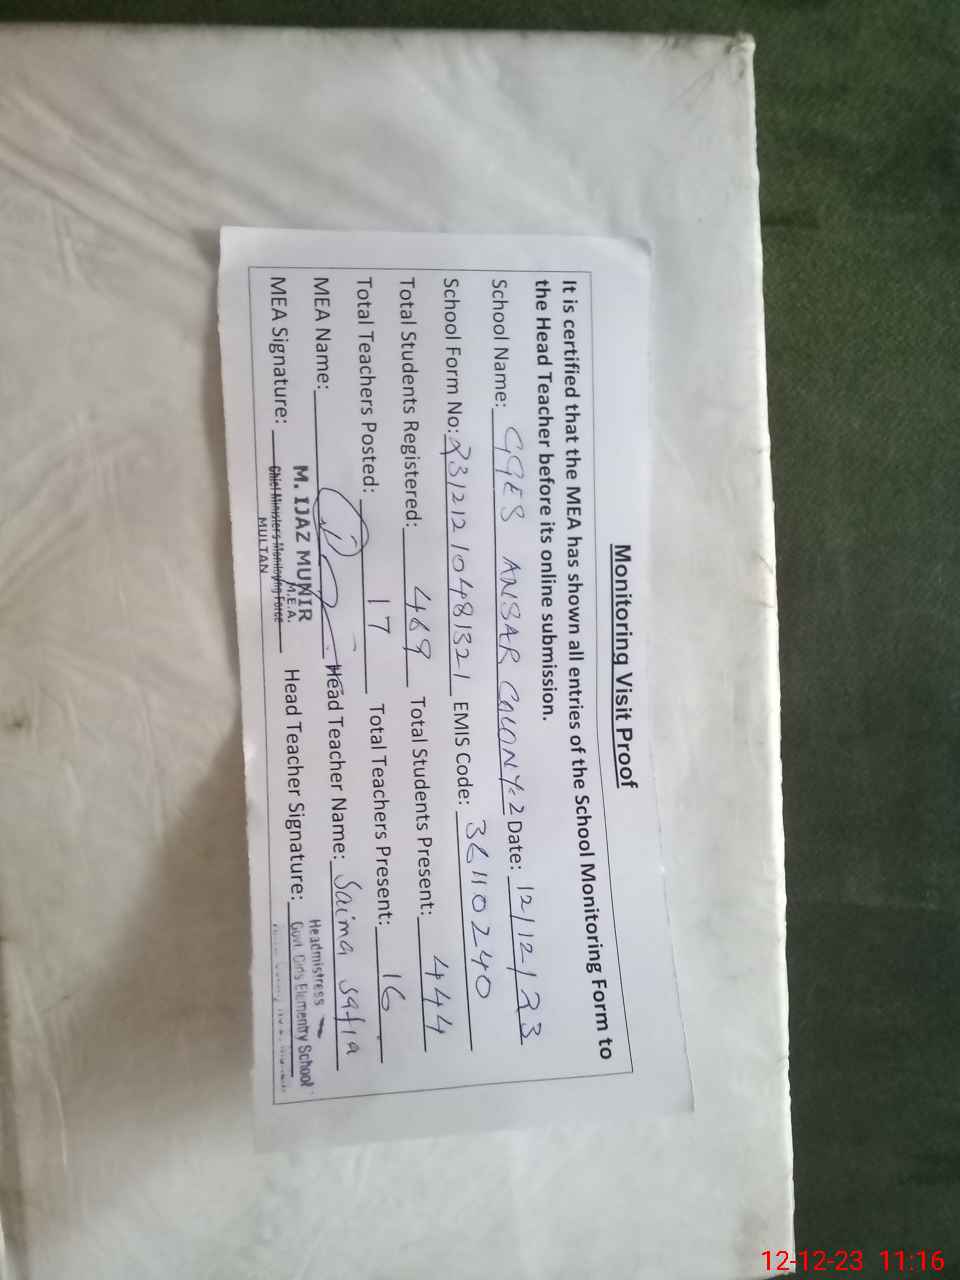 Monitoring Visit Proof
It is certified that the MEA has shown all entries of the School Monitoring Form to
the Head Teacher before its online submission.
School Name: GGES ANSAR COLONY-2 Date: 12/12/23
School Form No: 231212104818321 EMIS Code: 36110240
Total Students Registered: 469 Total Students Present: 444
Total Teachers Posted: 17 Total Teachers Present: 16
MEA Name: Head Teacher Name: Saima Safia
MEA Signature: Head Teacher Signature:
M. IJAZ MUNIR
M.E.A.
Chief Ministers Monitoring Force
MULTAN
Headmistress
Govt. Girls Elementry School
12-12-23 11:16